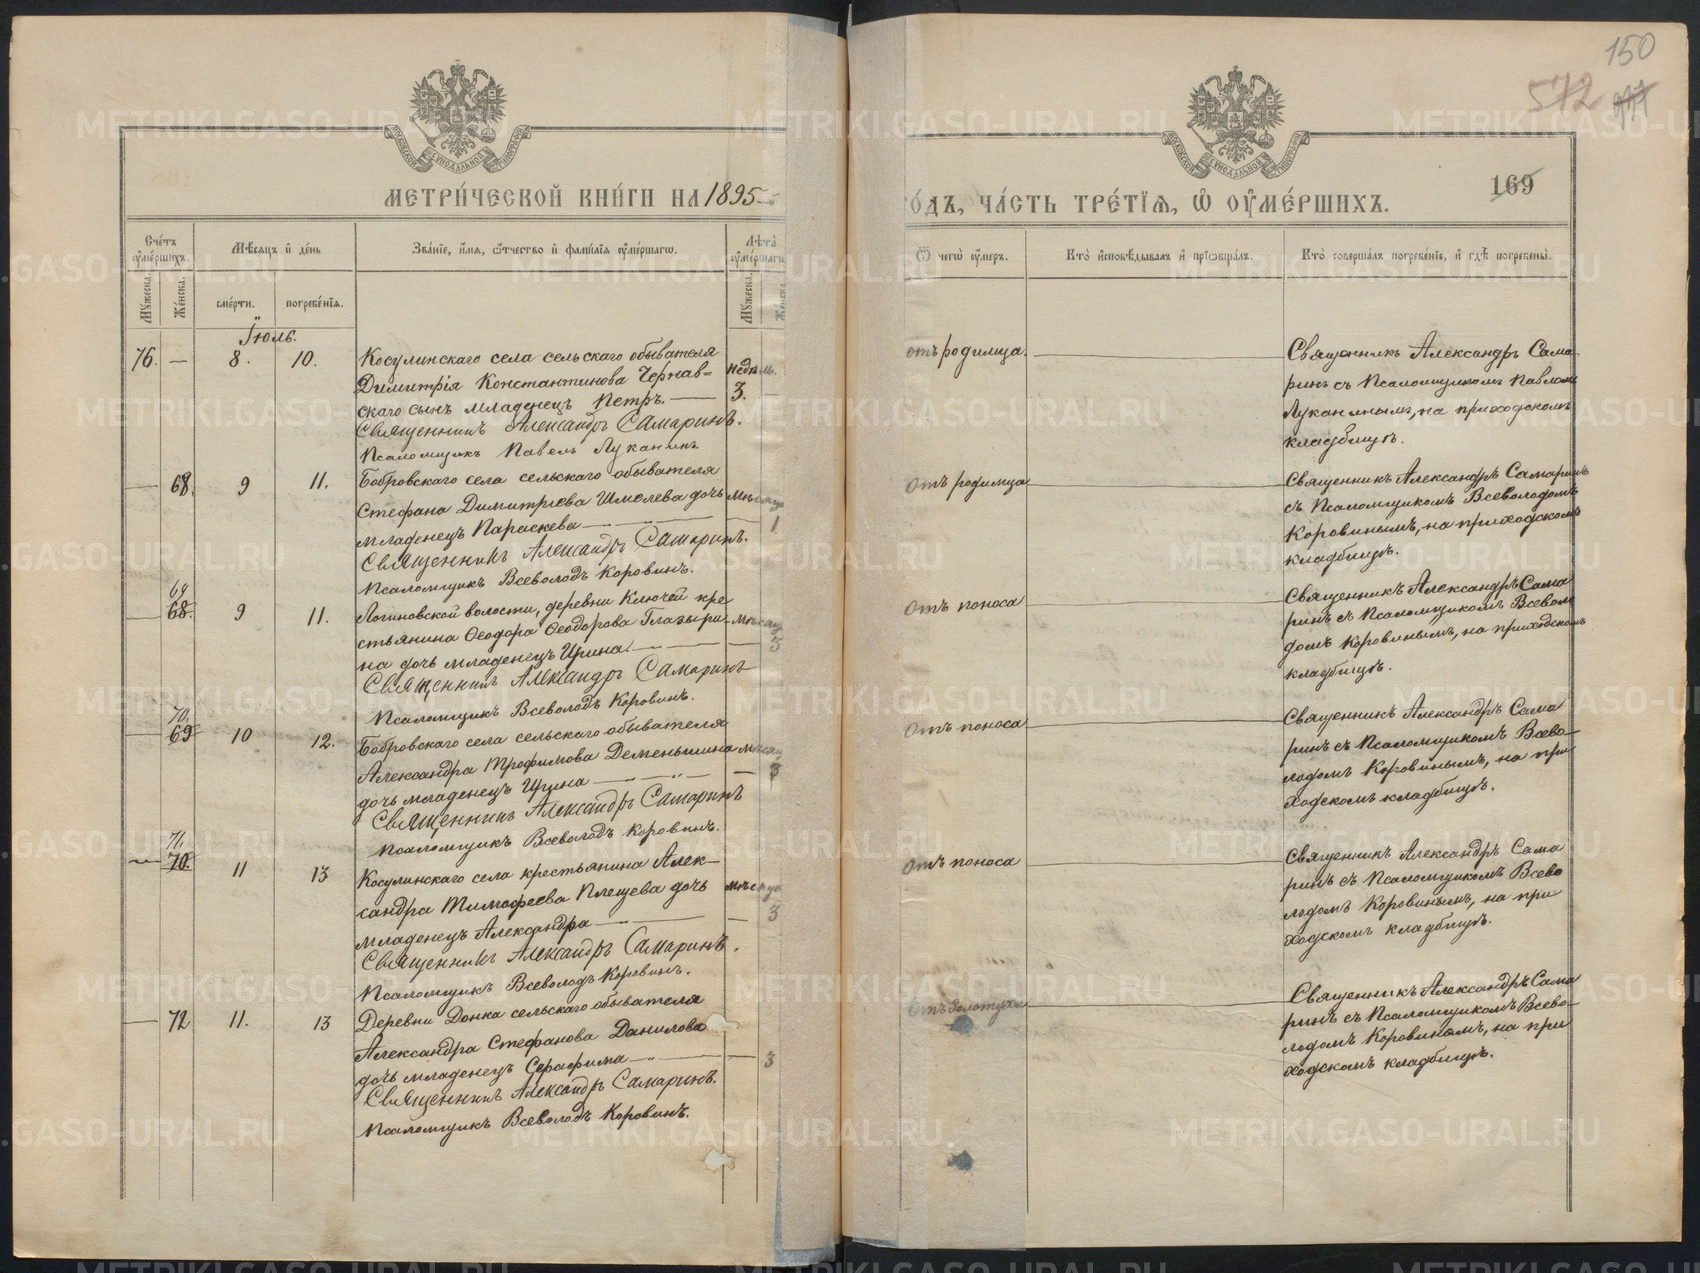 150
572
169
МОСКОВСКОЙ СѴНОДАЛЬНОЙ ТИПОГРАФІИ
МОСКОВСКОЙ СѴНОДАЛЬНОЙ ТИПОГРАФІИ
МЕТРИ́ЧЕСКОЙ КНИ́ГИ НА 1895
ГО́ДЪ, ЧА́СТЬ ТРЕ́ТЇѦ, Ѽ ОУ҆МЕ́РШИХЪ.
Сче́тъ оу҆ме́ршихъ.
Мѣ́сяцъ и҆ де́нь
Зва́нїе, и҆́мя, ѻ҆́тчество и҆ фамилїя оу҆ме́ршагѡ.
Лѣта̀ оу҆ме́ршагѡ
Ѿ чегѡ̀ оу҆́меръ.
Кто̀ и҆сповѣ́дывалъ и҆ прїѡбща́лъ.
Кто̀ соверша́лъ погребе́нїе, и҆ гдѣ̀ погребены̀.
Му́жеска.
Же́нска.
сме́рти.
погребе́нїя.
Му́жеска.
Же́нска.
Іюль.
76. — 8. 10. Косулинскаго села сельскаго обывателя
Димитрія Константинова Чернав= недѣль.
скаго сынъ младенецъ Петръ. — 3.
Священникъ Александръ Самаринъ.
Псаломщикъ Павелъ Луканинъ
отъ родимца.
Священникъ Александръ Сама
ринъ съ Псаломщикомъ Павломъ
Луканинымъ, на приходскомъ
кладбищѣ.
— 68. 9 11. Бобровскаго села сельскаго обывателя
Стефана Димитріева Шмелева дочь мѣсяцъ
младенецъ Параскева — 1
Священникъ Александръ Самаринъ.
Псаломщикъ Всеволодъ Коровинъ.
Отъ родимца
Священникъ Александръ Самаринъ
съ Псаломщикомъ Всеволодомъ
Коровинымъ, на приходскомъ
кладбищѣ.
69
— 68. 9 11. Логиновской волости, деревни Ключей кре
стьянина Ѳеодора Ѳеодорова Глазыри- мѣсяц
на дочь младенецъ Ирина. — 3
Священникъ Александръ Самаринъ
Псаломщикъ Всеволодъ Коровинъ.
Отъ поноса
Священникъ Александръ Сама
ринъ съ Псаломщикомъ Всеволо
домъ Коровинымъ, на приходскомъ
кладбищѣ.
70.
— 69 10 12. Бобровскаго села сельскаго обывателя
Александра Трофимова Деменьшина мѣсяц
дочь младенецъ Ирина — 3
Священникъ Александръ Самаринъ
Псаломщикъ Всеволодъ Коровинъ.
Отъ поноса
Священникъ Александръ Сама
ринъ съ Псаломщикомъ Всево-
лодомъ Коровинымъ, на при
ходскомъ кладбищѣ.
71.
— 70. 11 13 Косулинскаго села крестьянина Алек-
сандра Тимофеева Плещева дочь мѣсяцо
младенецъ Александра — 3
Священникъ Александръ Самаринъ.
Псаломщикъ Всеволодъ Коровинъ.
Отъ поноса
Священникъ Александръ Сама
ринъ съ Псаломщикомъ Всево
лодомъ Коровинымъ, на при
ходскомъ кладбищѣ.
— 72 11. 13 Деревни Донка сельскаго обывателя
Александра Стефанова Данилова
дочь младенецъ Серафима — 3
Священникъ Александръ Самаринъ.
Псаломщикъ Всеволодъ Коровинъ.
Отъ золотухи
Священникъ Александръ Сама
ринъ съ Псаломщикомъ Всево-
лодомъ Коровинымъ, на при
ходскомъ кладбищѣ.
METRIKI.GASO-URAL.RU